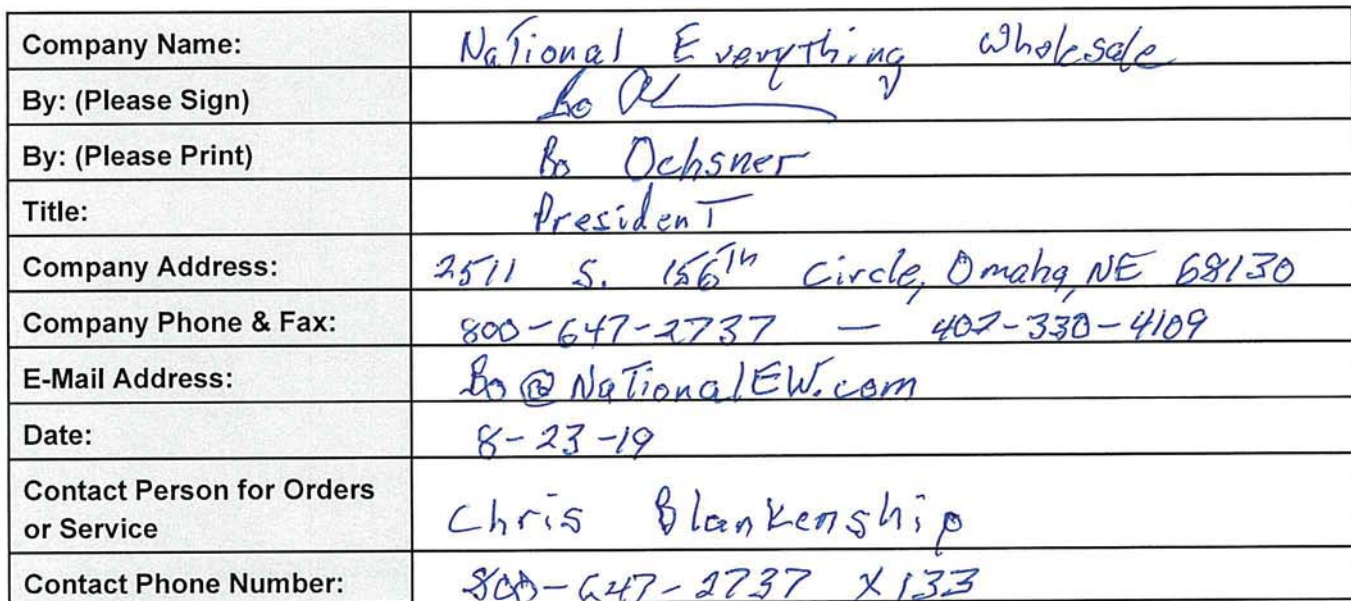 Company Name: NaTional Everything Wholesale
By: (Please Sign) Bo
By: (Please Print) Bo Ochsner
Title: PresidenT
Company Address: 2511 S. 156th Circle, Omaha, NE 68130
Company Phone & Fax: 800-647-2737 — 402-330-4109
E-Mail Address: Bo@NaTionalEW.com
Date: 8-23-19
Contact Person for Orders
or Service Chris Blankenship
Contact Phone Number: 800-647-2737 x133